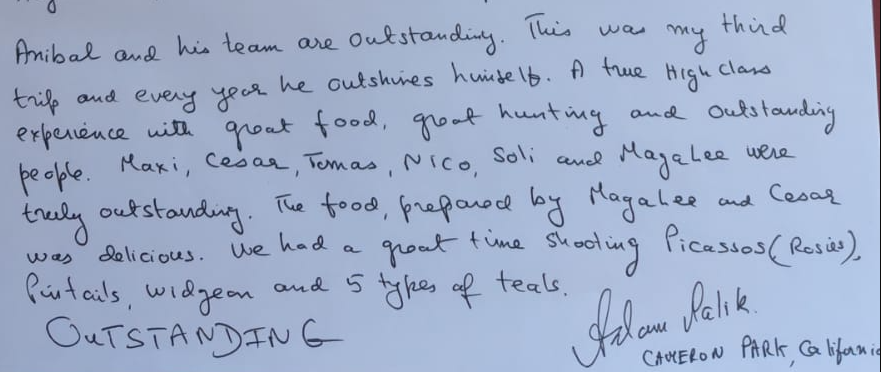 Anibal and his team are outstanding. This was my third
trip and every year he outshines himself. A true High class
experience with great food, great hunting and outstanding
people. Maxi, Cesar, Tomas, Nico, Soli and Magalee were
truly outstanding. The food, prepared by Magalee and Cesar
was delicious. We had a great time shooting Picassos (Rosies),
Pintails, widgeon and 5 types of teals.
OUTSTANDING
Adam Palik.
CAMERON PARK, California